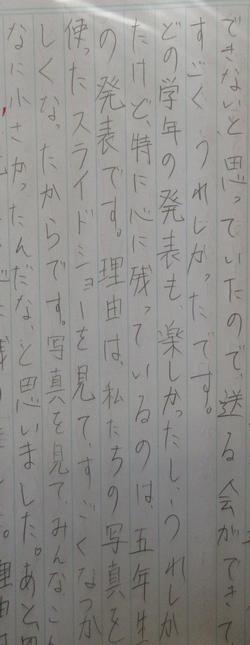 できない、と思っていたので、送る会ができて
すごく、うれしかったです。
どの学年の発表も、楽しかったし、うれしか
たけど、特に心に残っているのは、五年生
の発表です。理由は、私たちの写真を
使ったスライドショーを見て、すごくなつか
しくなったからです。写真を見て、みんなこん
なに小さかったんだな、と思いました。あと、